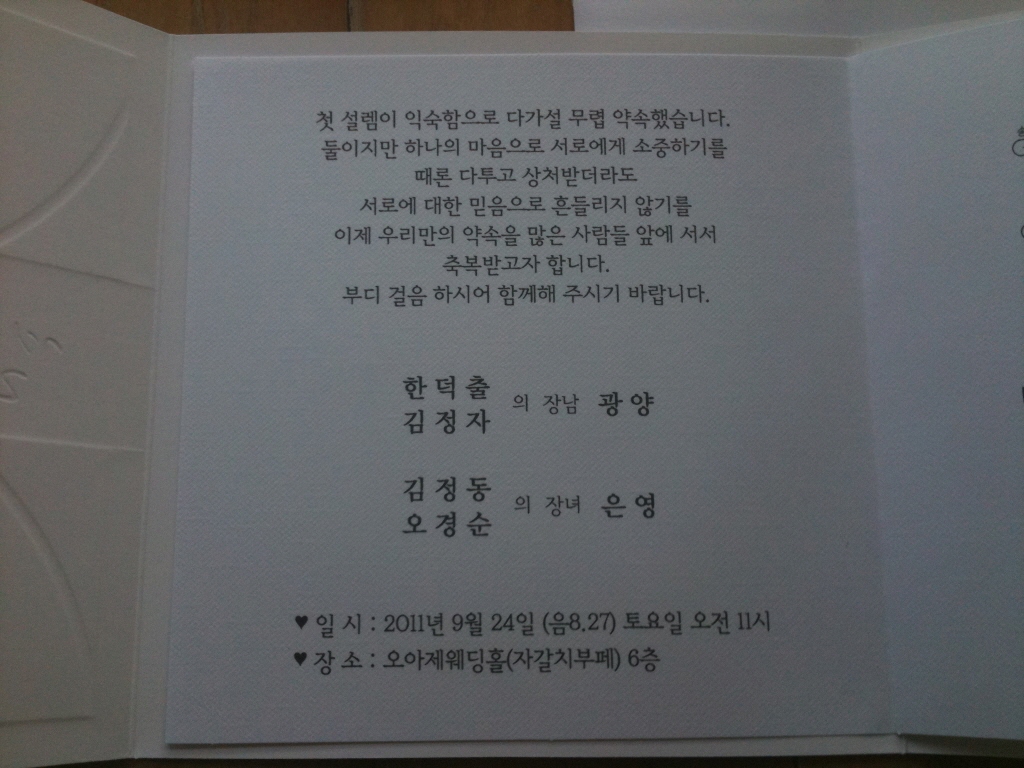 첫 설렘이 익숙함으로 다가설 무렵 약속했습니다.
둘이지만 하나의 마음으로 서로에게 소중하기를
때론 다투고 상처받더라도
서로에 대한 믿음으로 흔들리지 않기를
이제 우리만의 약속을 많은 사람들 앞에 서서
축복받고자 합니다.
부디 걸음 하시어 함께해 주시기 바랍니다.
한 덕 출
김 정 자 의 장남 광 양
김 정 동
오 경 순 의 장녀 은 영
♥ 일 시 : 2011년 9월 24일 (음8.27) 토요일 오전 11시
♥ 장 소 : 오아제웨딩홀(자갈치부페) 6층